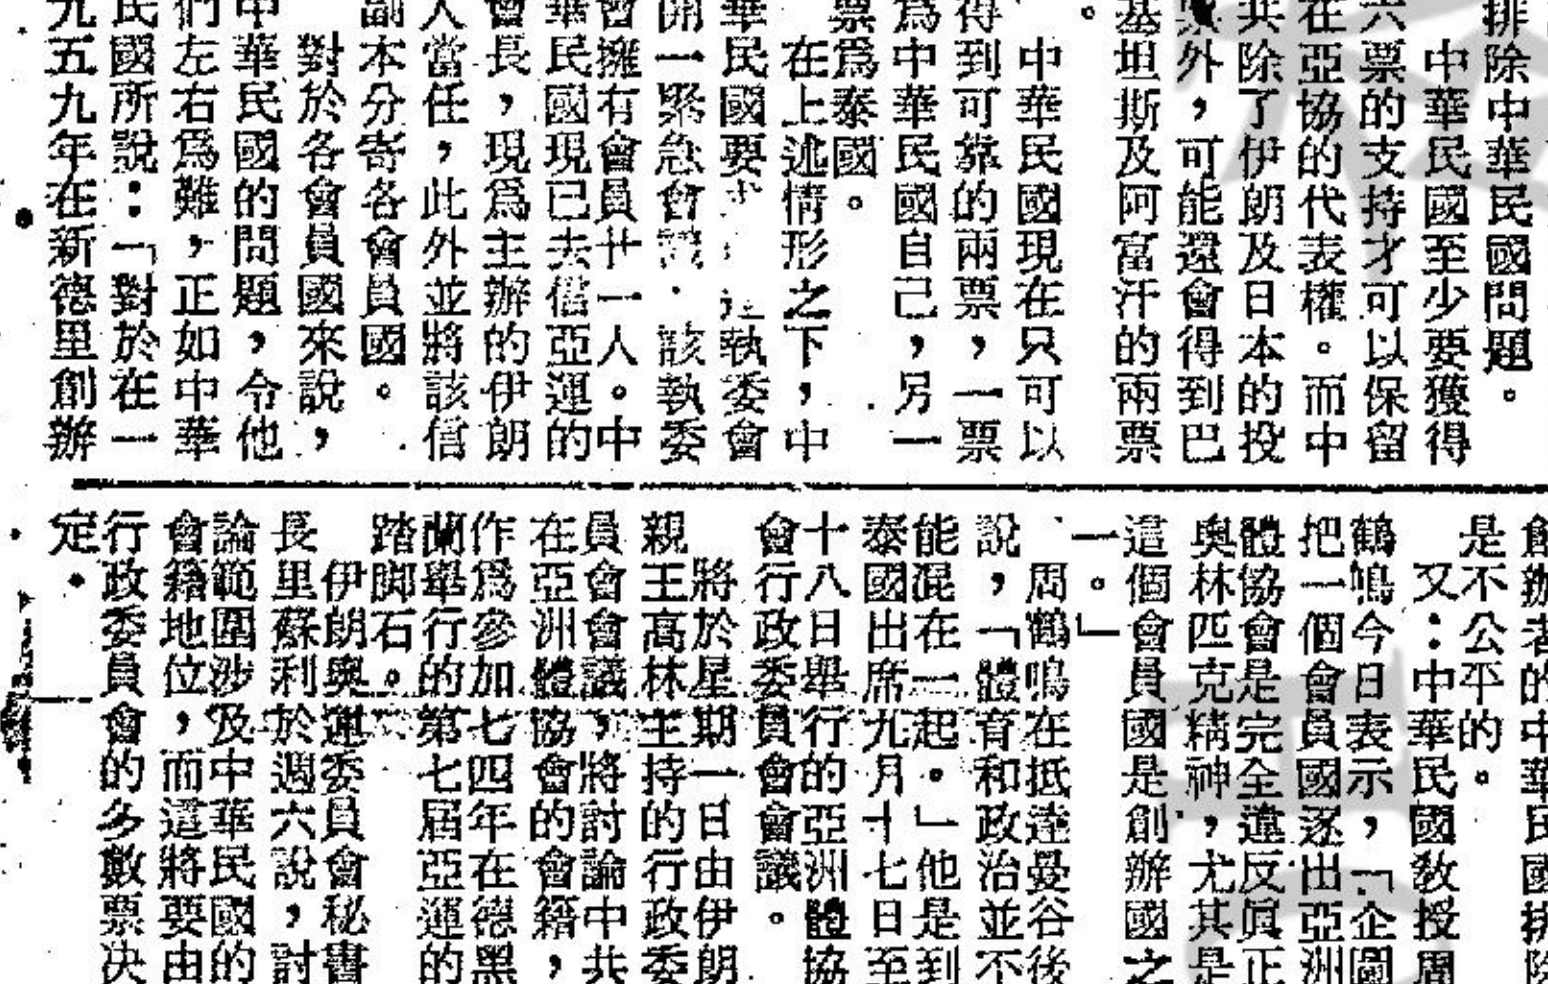 排除中華民國問題。
中華民國至少要獲得
六票的支持才可以保留
在亞協的代表權。而中
共除了伊朗及日本的投
票外,可能還會得到巴
基坦斯及阿富汗的兩票
。
中華民國現在只可以
得到可靠的兩票,一票
爲中華民國自己,另一
票爲泰國。
在上述情形之下,中
華民國要求執委會
開一緊急會議.該執委
會擁有會員廿一人。中
華民國現已去信亞運的
會長,現爲主辦的伊朗
人當任,此外並將該信
副本分寄各會員國。
對於各會員國來說,
中華民國的問題,令他
們左右爲難,正如中華
民國所說:「對於在一
九五九年在新德里創辦
創辦者的中華民國排除
是不公平的。
又:中華民國教授周
鶴鳴今日表示,「企圖
把一個會員國逐出亞洲
體協會是完全違反眞正
奧林匹克精神,尤其是
這個會員國是創辦國之
一。」
周鶴鳴在抵達曼谷後
說,「體育和政治並不
能混在一起。」他是到
泰國出席九月十七日至
十八日舉行的亞洲體協
會行政委員會會議。
將於星期一日由伊朗
親王高林主持的行政委
員會會議,將討論中共
在亞洲體協會的會籍,
作爲參加七四年在德黑
蘭舉行的第七屆亞運的
踏脚石。
伊朗奧運委員會秘書
長里蘇利於週六說,討
論範圍涉及中華民國的
會籍地位,而這將要由
行政委員會的多數票决
定.